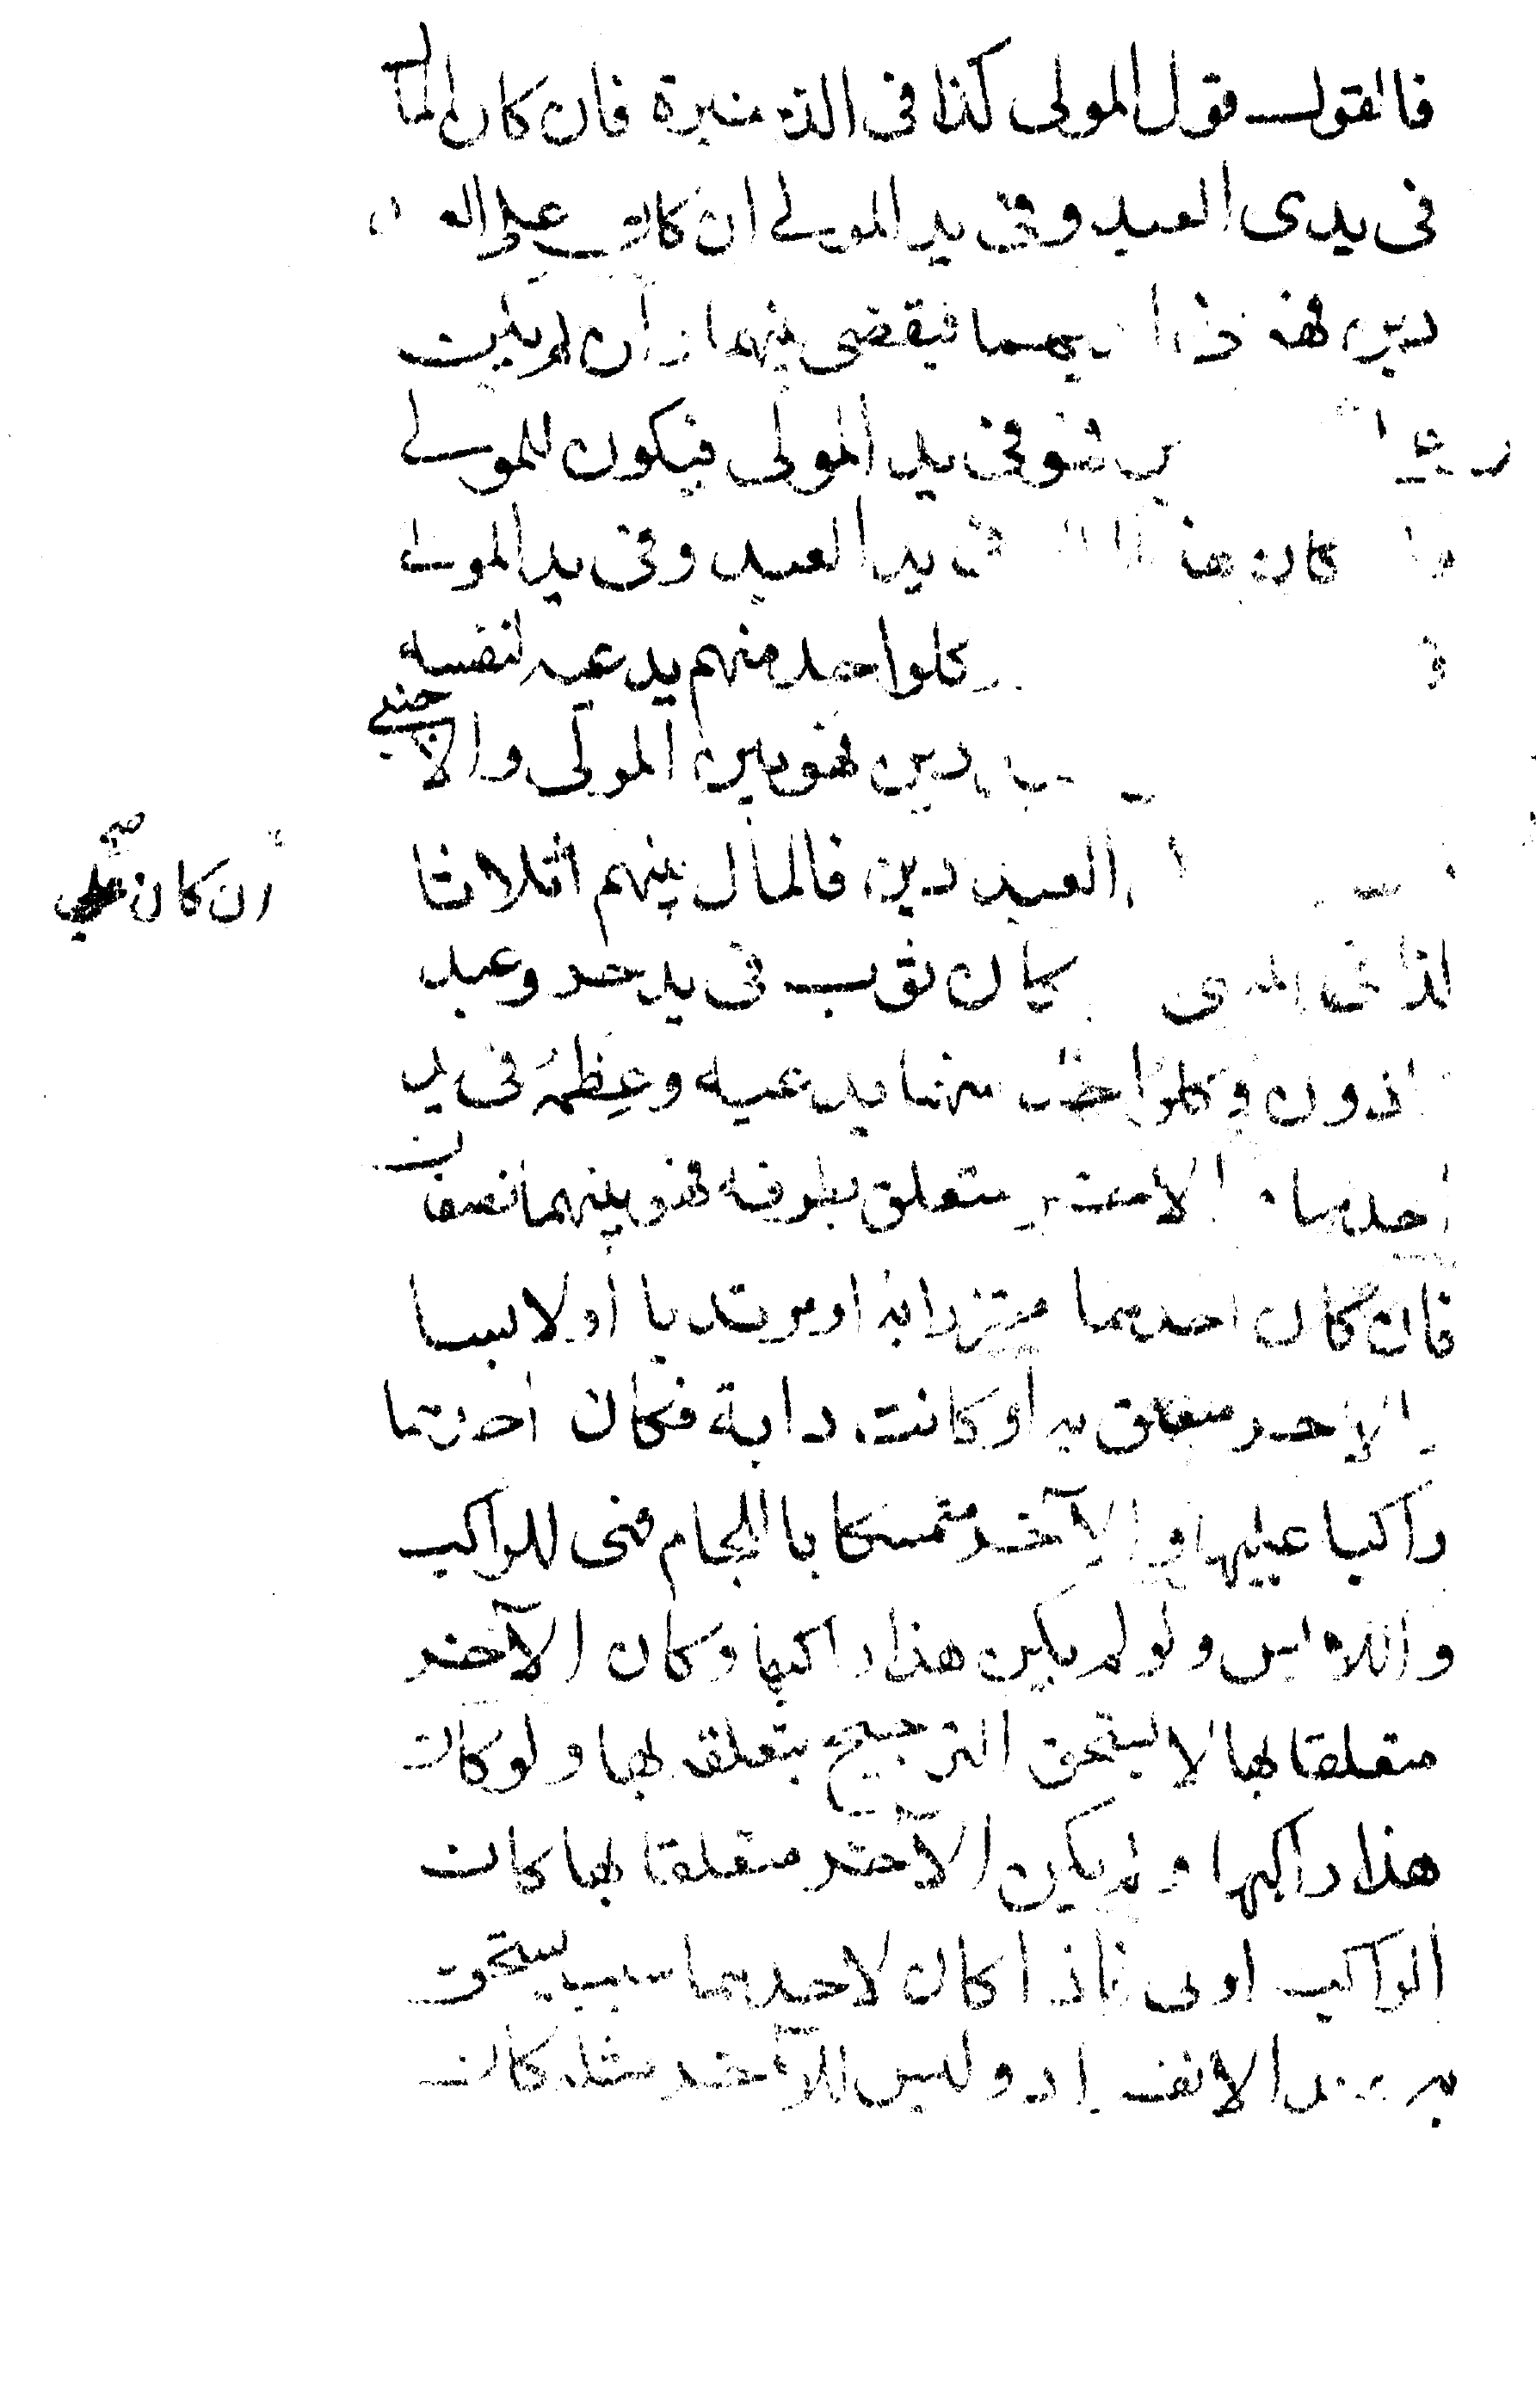 فالقول قول المولى كذا في الذخيرة فان كان المال
في يدى العبد وفي يد المولى ان كان على
دين فيقضى بينهما وان لم يكن
فهو في يد المولى فيكون للمولى
كان في يد العبد وفي يد المولى
وكلواحد منهم يدعيه لنفسه
دين فهو بين المولى والاجنبي
العبد دين فالمال بينهم اثلاثا
ان كان على صح
كان ثوب في يد حر وعبد
وكلواحد منهما يدعيه وعظمه في يد
احدهما الاخر متعلق بطرفه فهو بينهما نصفان
فان كان احدهما متزرا به او مرتديا او لابسا
والاخر متعلق به او كانت دابة فكان احدهما
راكبا عليها والآخر متمسكا باللجام فهى للراكب
واللابس ولو لم يكن هذا راكبها وكان الآخر
متعلقا بها لا يستحق الترجيح بتعلقه بها ولو كان
هذا راكبها ولم يكن الآخر متعلقا بها كان
الراكب اولى فاذا كان لاحدهما سبب يستحق
به الانفراد وليس للآخر مثله كان